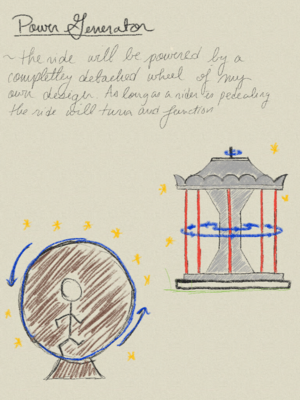 Power Generator
~ the ride will be powered by a
completley detached wheel of my
own design. As long as a rider is pedaling
the ride will turn and function